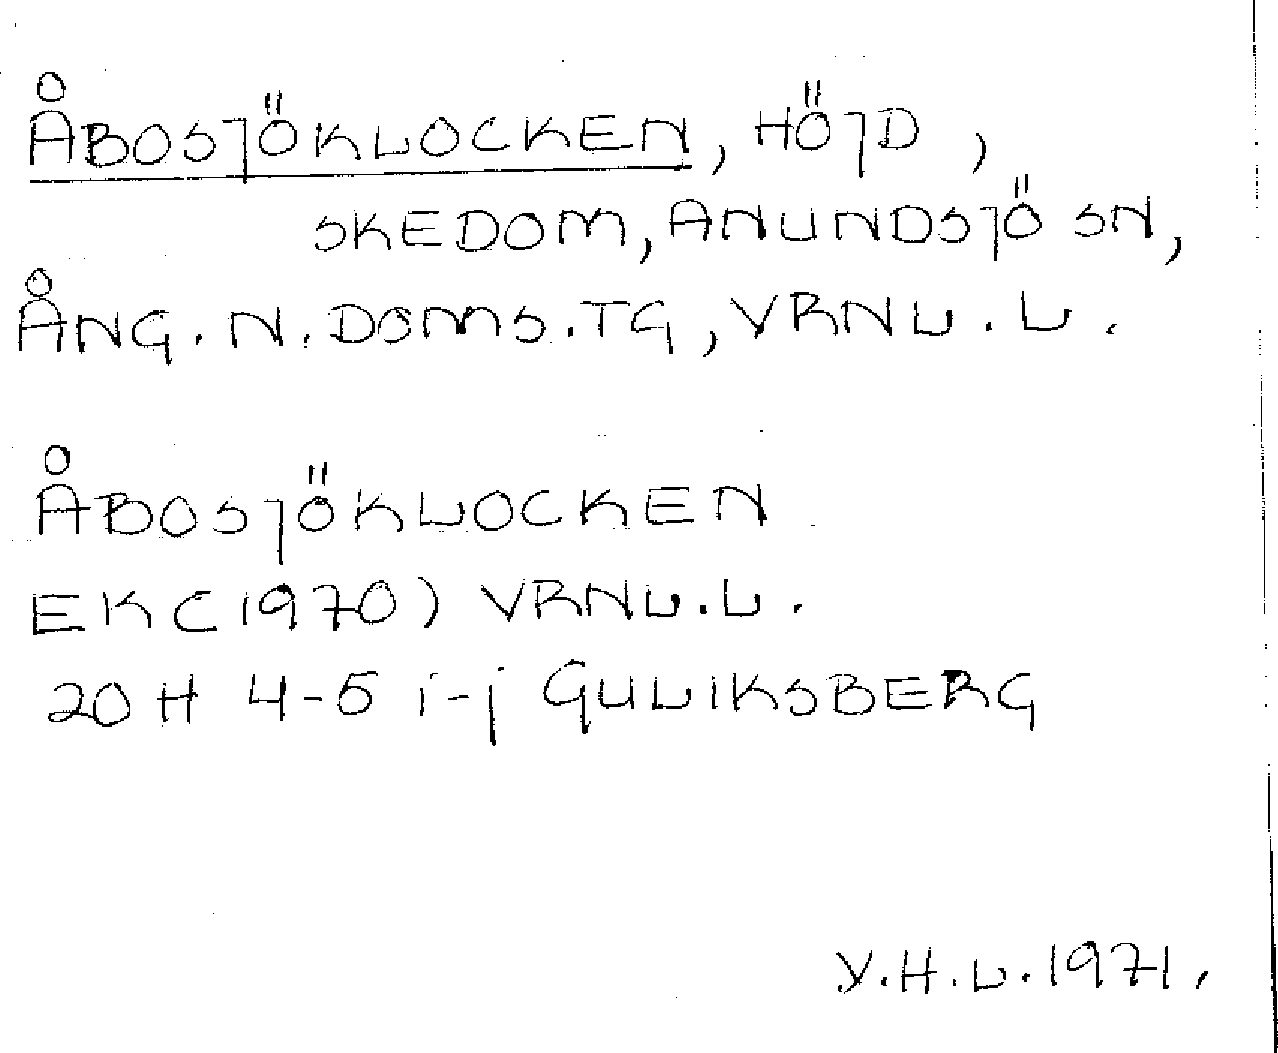 ÅBOSJÖKLOCKEN, HÖJD,
SKEDOM, ANUNDSJÖ SN,
ÅNG. N. DOMS.TG, VRNL.L.
ÅBOSJÖKLOCKEN
EK(1970) VRNL.L.
20 H 4-5 i-j GULIKSBERG
Y.H.L.1971.